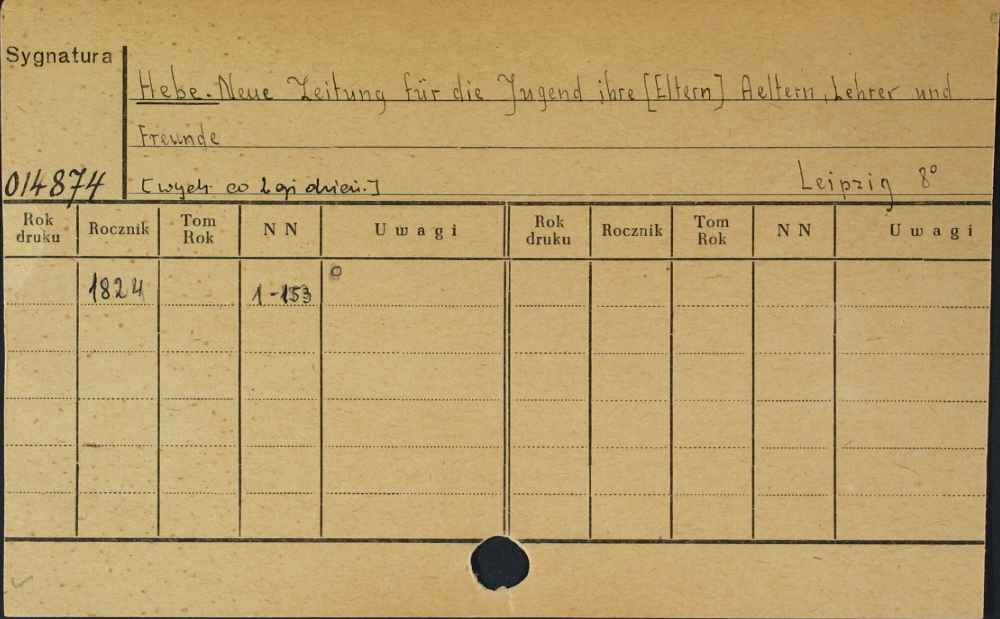 Sygnatura
Hebe. Neue Zeitung für die Jugend ihre [Eltern] Aeltern, Lehrer und
Freunde
014874
[wych co 2 gi dzień.]
Leipzig 8°
Rok druku Rocznik Tom Rok NN Uwagi Rok druku Rocznik Tom Rok NN Uwagi
1824 1-153 o